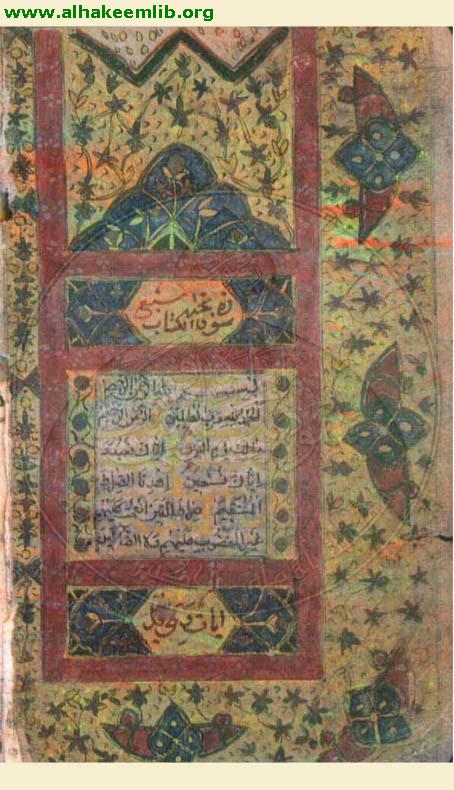 www.alhakeemlib.org
سورة فاتحة الكتاب سبع
بسم الله الرحمن الرحيم
الحمد لله رب العالمين الرحمن الرحيم
ملك يوم الدين اياك نعبد و
اياك نستعين اهدنا الصراط
المستقيم صراط الذين انعمت عليهم
غير المغضوب عليهم ولا الضالين
ايات